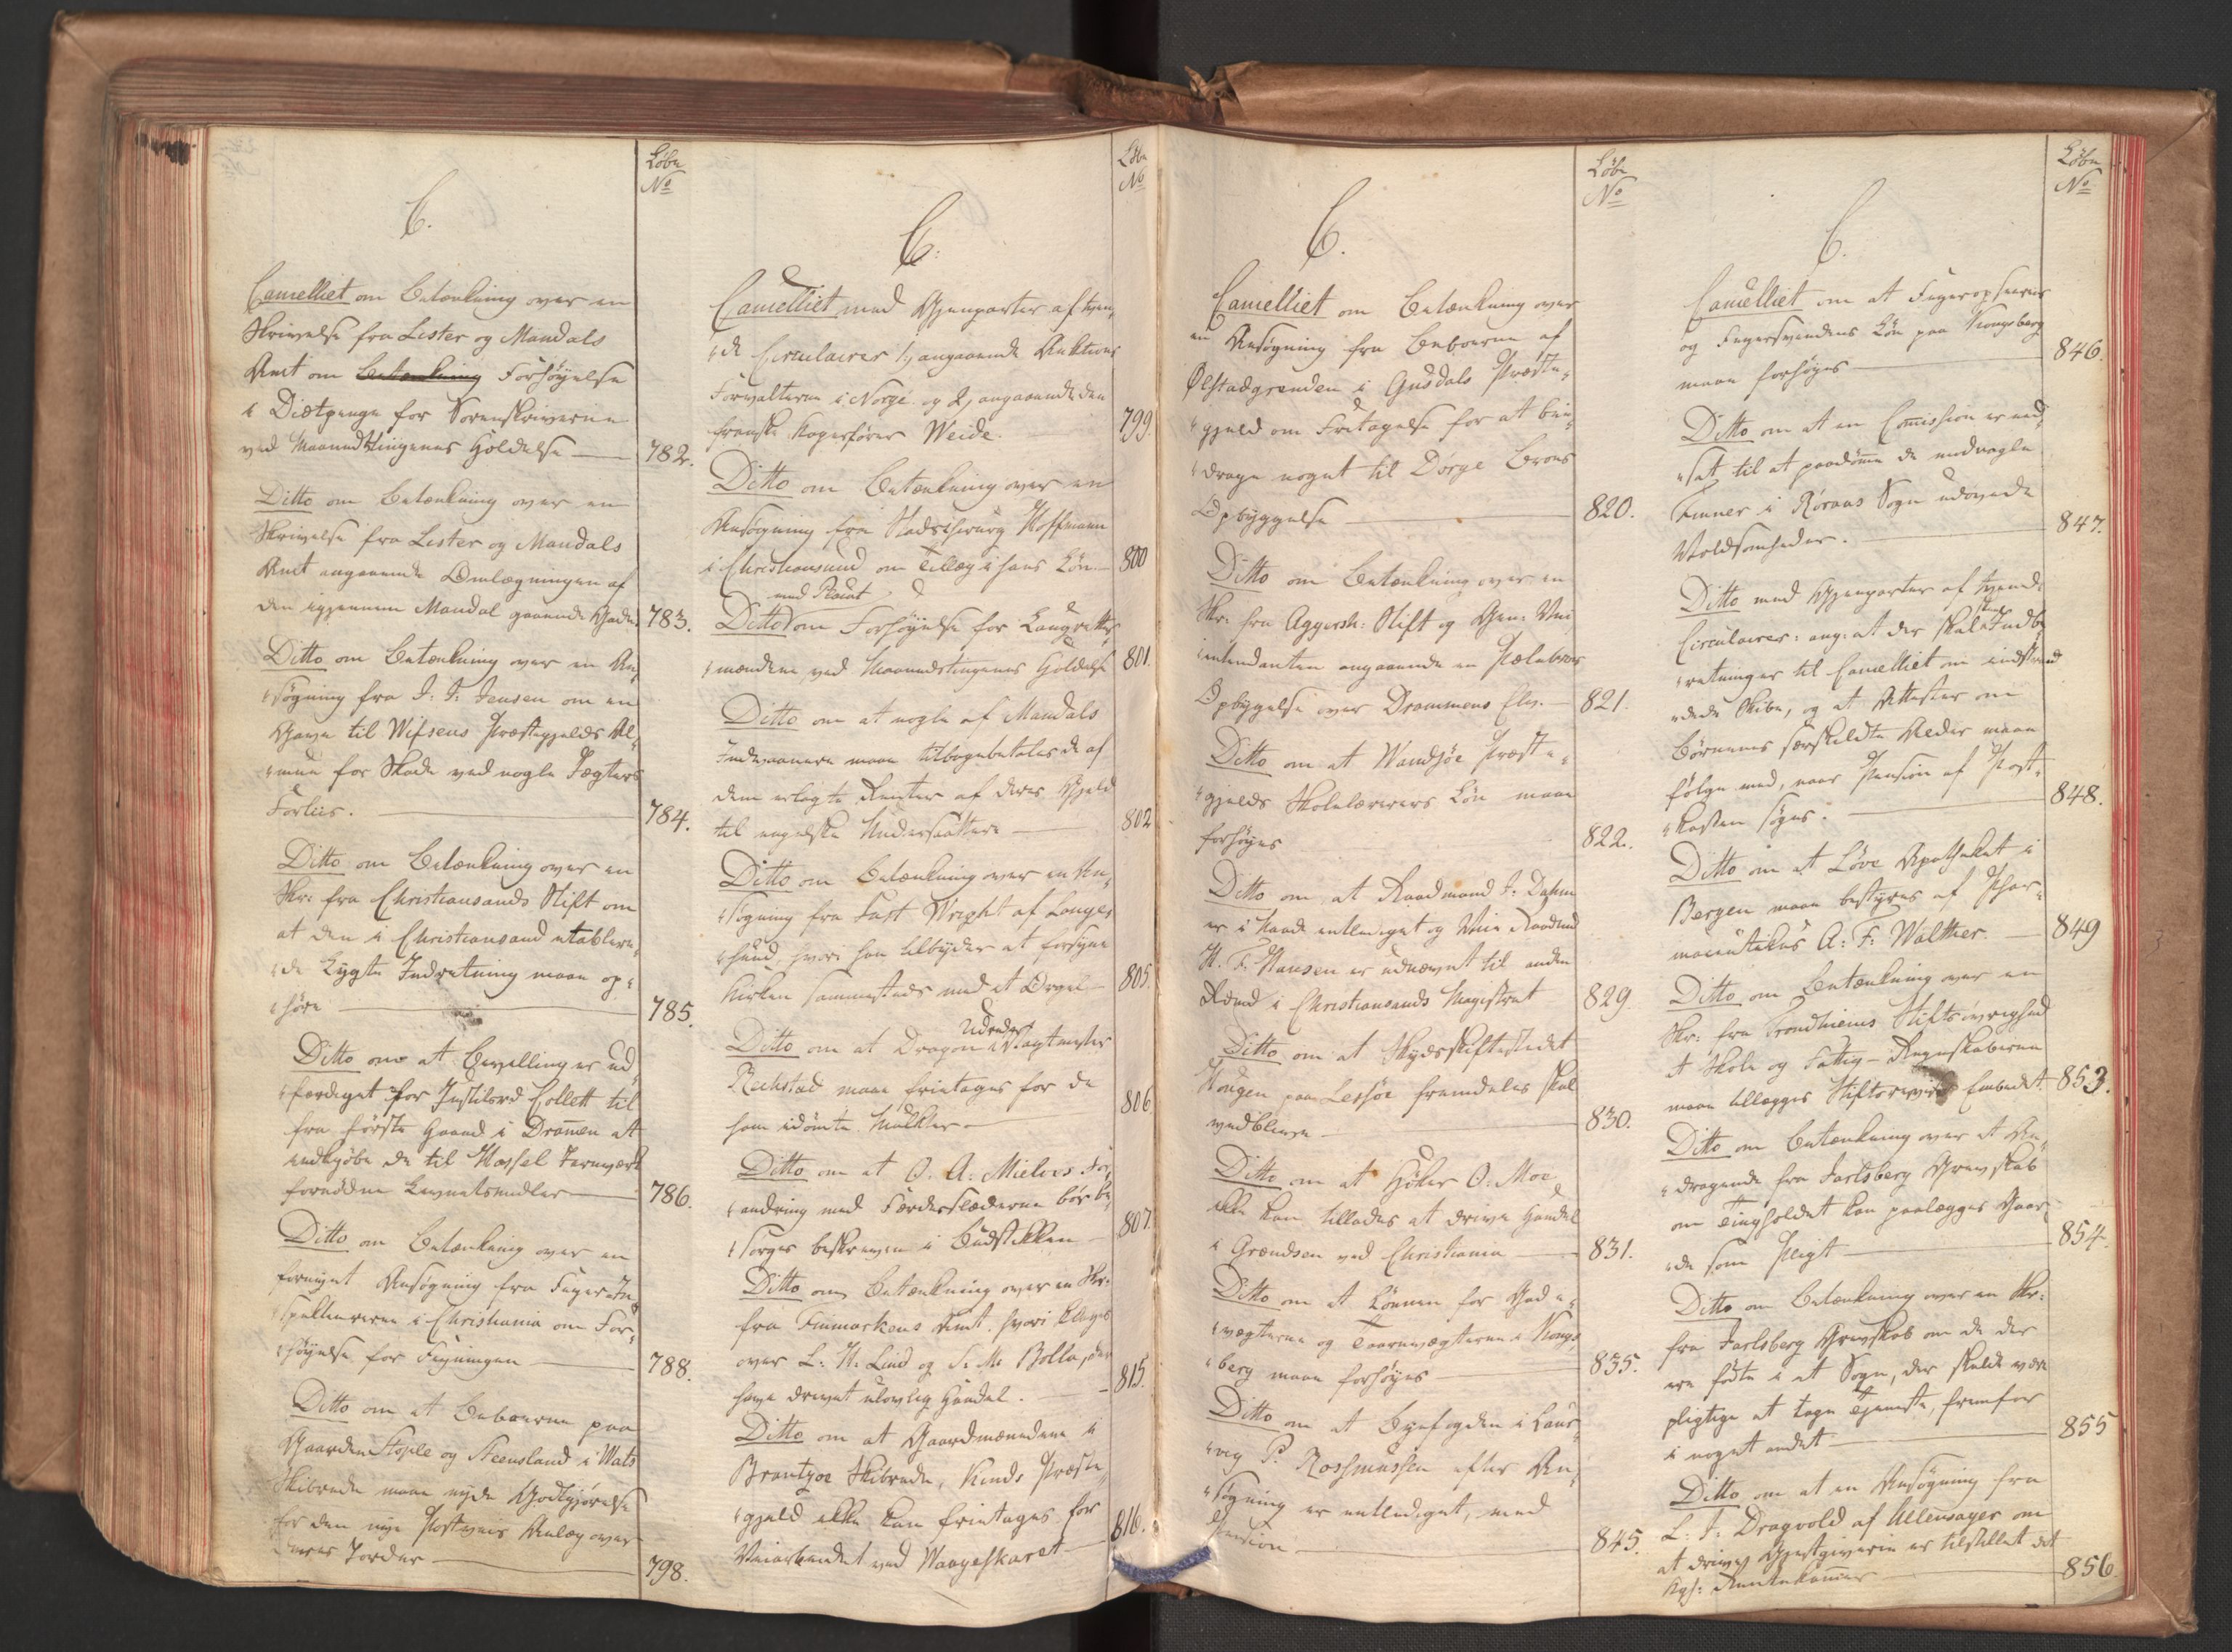 Løbe
No
C.
Cancelliet om Betænkning over en
Skrivelse fra Lister og Mandals
Amt om Betænkning Forhøyelse
i Diætpenge for Sorenskriverne
ved Maanedtingenes Holdelse 782.
Ditto om Betænkning over en
Skrivelse fra Lister og Mandals
Amt angaaende Omlægningen af
den igjennem Mandal gaaende Gade 783.
Ditto om Betænkning over en An„
„søgning fra J: F: Jensen om en
Gave til Wefsens Præstegjelds Al„
„mue for Skade ved nogle Jægters
Forliis. 784.
Ditto om Betænkning over en
Skr: fra Christiansands Stift om
at den i Christiansand etablere„
„de Lygte Indretning maae op„
„høre 785.
Ditto om at Bevilling er ud„
„færdiget for Justitsrd Collett til
fra første Haand i Dramen at
indkjøbe de til Hassel Jernværk
fornødne Levnetsmidler 786.
Ditto om Betænkning over en
fornyet Ansøgning fra Feyer In„
„specteurerne i Christiania om For„
„høyelse for Feyningen 788.
Ditto om at Beboerne paa
Gaarden Stople og Steensland i Wats
Skibrede maae nyde Godtgjørelse
for den nye Postveis Anlæg over
deres Jorder 798.
Løbe
No
C.
Cancelliet med Gjenparter af tven„
„de Circulairer 1, angaaende Auktions
Forvalterne i Norge og 2, angaaende den
franske Kaperfører Weide. 799.
Ditto om Betænkning over en
Ansøgning fra Stadschirurg Hoffmann
i Christiansund om Tillæg i hans Løn 800
med Placat
Ditto om Forhøyelse for Laugrettes
„mændene ved Maanedstingenes Holdelse 801.
Ditto om at nogle af Mandals
Indvaanere maae tilbagebetales de af
dem erlagte Renter af deres Gjeld
til engelske Undersaatter 802
Ditto om Betænkning over en An„
„søgning fra Fast Wright af Lange„
„sund, hvori han tilbyder at forsyne
Kirken sammesteds med et Orgel 805.
Ditto om at Dragon Undervagtmester
Reihstad maae fritages for de
ham idømte Mulkter 806
Ditto om at O. A: Mielvos For„
„andring med Færdesslæderne bør be„
„sørges beskreven i Budstikken 807.
Ditto om Betænkning over en Skr:
fra Finmarkens Amt, hvori klages
over L: H. Lind og S. M. Bolla, der
have drevet ulovlig Handel. 815.
Ditto om at Gaardmændene i
Brantzøe Skibrede, Kinds Præste„
„gjeld ikke kan fritages for
Veiarbeidet ved Waageskaret 816.
Løbe
No
C.
Cancelliet om Betænkning over
en Ansøgning fra Beboerne af
Ølstadgrenden i Gusdals Præste„
„gjeld om Fritagelse for at bi„
„drage noget til Dørge Broes
Opbyggelse 820.
Ditto om Betænkning over en
Skr: fra Aggersh: Stift og Gen: Vei
„intendanten angaaende en Pælebroes
Opbyggelse over Drammens Elv. 821.
Ditto om at Wandsøe Præste„
„gjelds Skolelæreres Løn maae
forhøyes 822.
Ditto om at Raadmand J: Dahm
er i Naade entlediget og Vice Raadmd
H. F. Hansen er udnævnt til anden
Rdmd i Christiansands Magistrat 829.
Ditto om at Skydsskiftestedet
Haugen paa Lessøe fremdeles skal
vedblive 830.
Ditto om at Høker O: Moe
ikke kan tillades at drive Handel
i Grændsen ved Christiania 831.
Ditto om at Lønnen for Gade„
„vægterne og Taarnvægterne i Kongs
„berg maae forhøyes 835.
Ditto om at Byefogden i Laur„
„vig P. Rossmussen efter An„
„søgning er entlediget, med
Pension 845.
Løbe
No
C.
Cancelliet om at Feyeropseerens
og Feyersvendens Løn paa Kongsberg
maae forhøyes 846.
Ditto om at en Comission er ned„
„sat til at paadømme de ved nogle
Finner i Røraas Sogn udøvede
Voldsomheder. 847.
Ditto med Gjenparter af tvende
Circulairer: ang: at der skal skee Indbe„
„retninger til Cancelliet om indstran„
„dede Skibe, og at Attester om
Børnenes særskildte Alder maae
følge med, naar Pension af Post„
„kassen søges. 848.
Ditto om at Løve Apotheket i
Bergen maae bestyres af Phar„
„maceutikus A: F: Walther. 849
Ditto om Betænkning over en
Skr: fra Trondhiems Stiftsøvrighed
at Skole og Fattig-Regnskaberne
maae tillægges Stiftsrevisor Embedet. 853.
Ditto om Betænkning over et An„
„dragende fra Jarlsberg Grevskab
om Tingholdet kan paalægges Gaar„
„de som Pligt 854.
Ditto om Betænkning over en Skr:
fra Jarlsberg Grevskab om de der
ere fødte i et Sogn, der skulde være
pligtige at tage Tjeneste, fremfor
i noget andet 855
Ditto om at en Ansøgning fra
L: J: Dragvold af Ullensager om
at drive Gjestgiverie er tilstillet det
Kgl: Rentekammer 856.